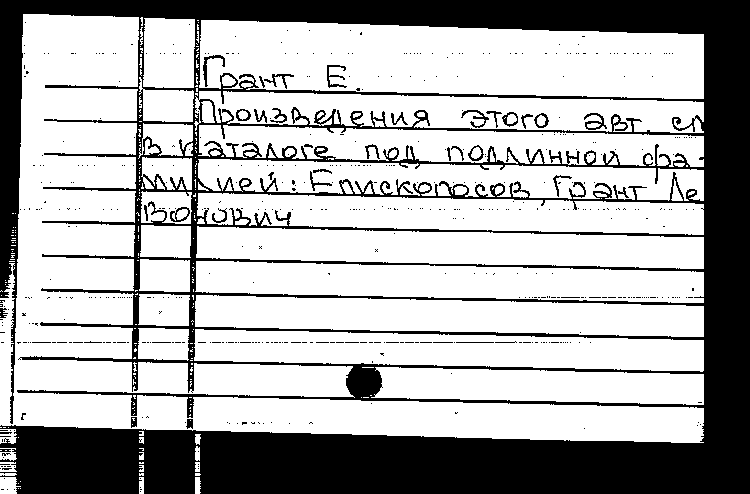 Грант Е.
Произведения этого авт. см
в каталоге под подлинной фа-
милией: Епископосов, Грант Ле
вонович